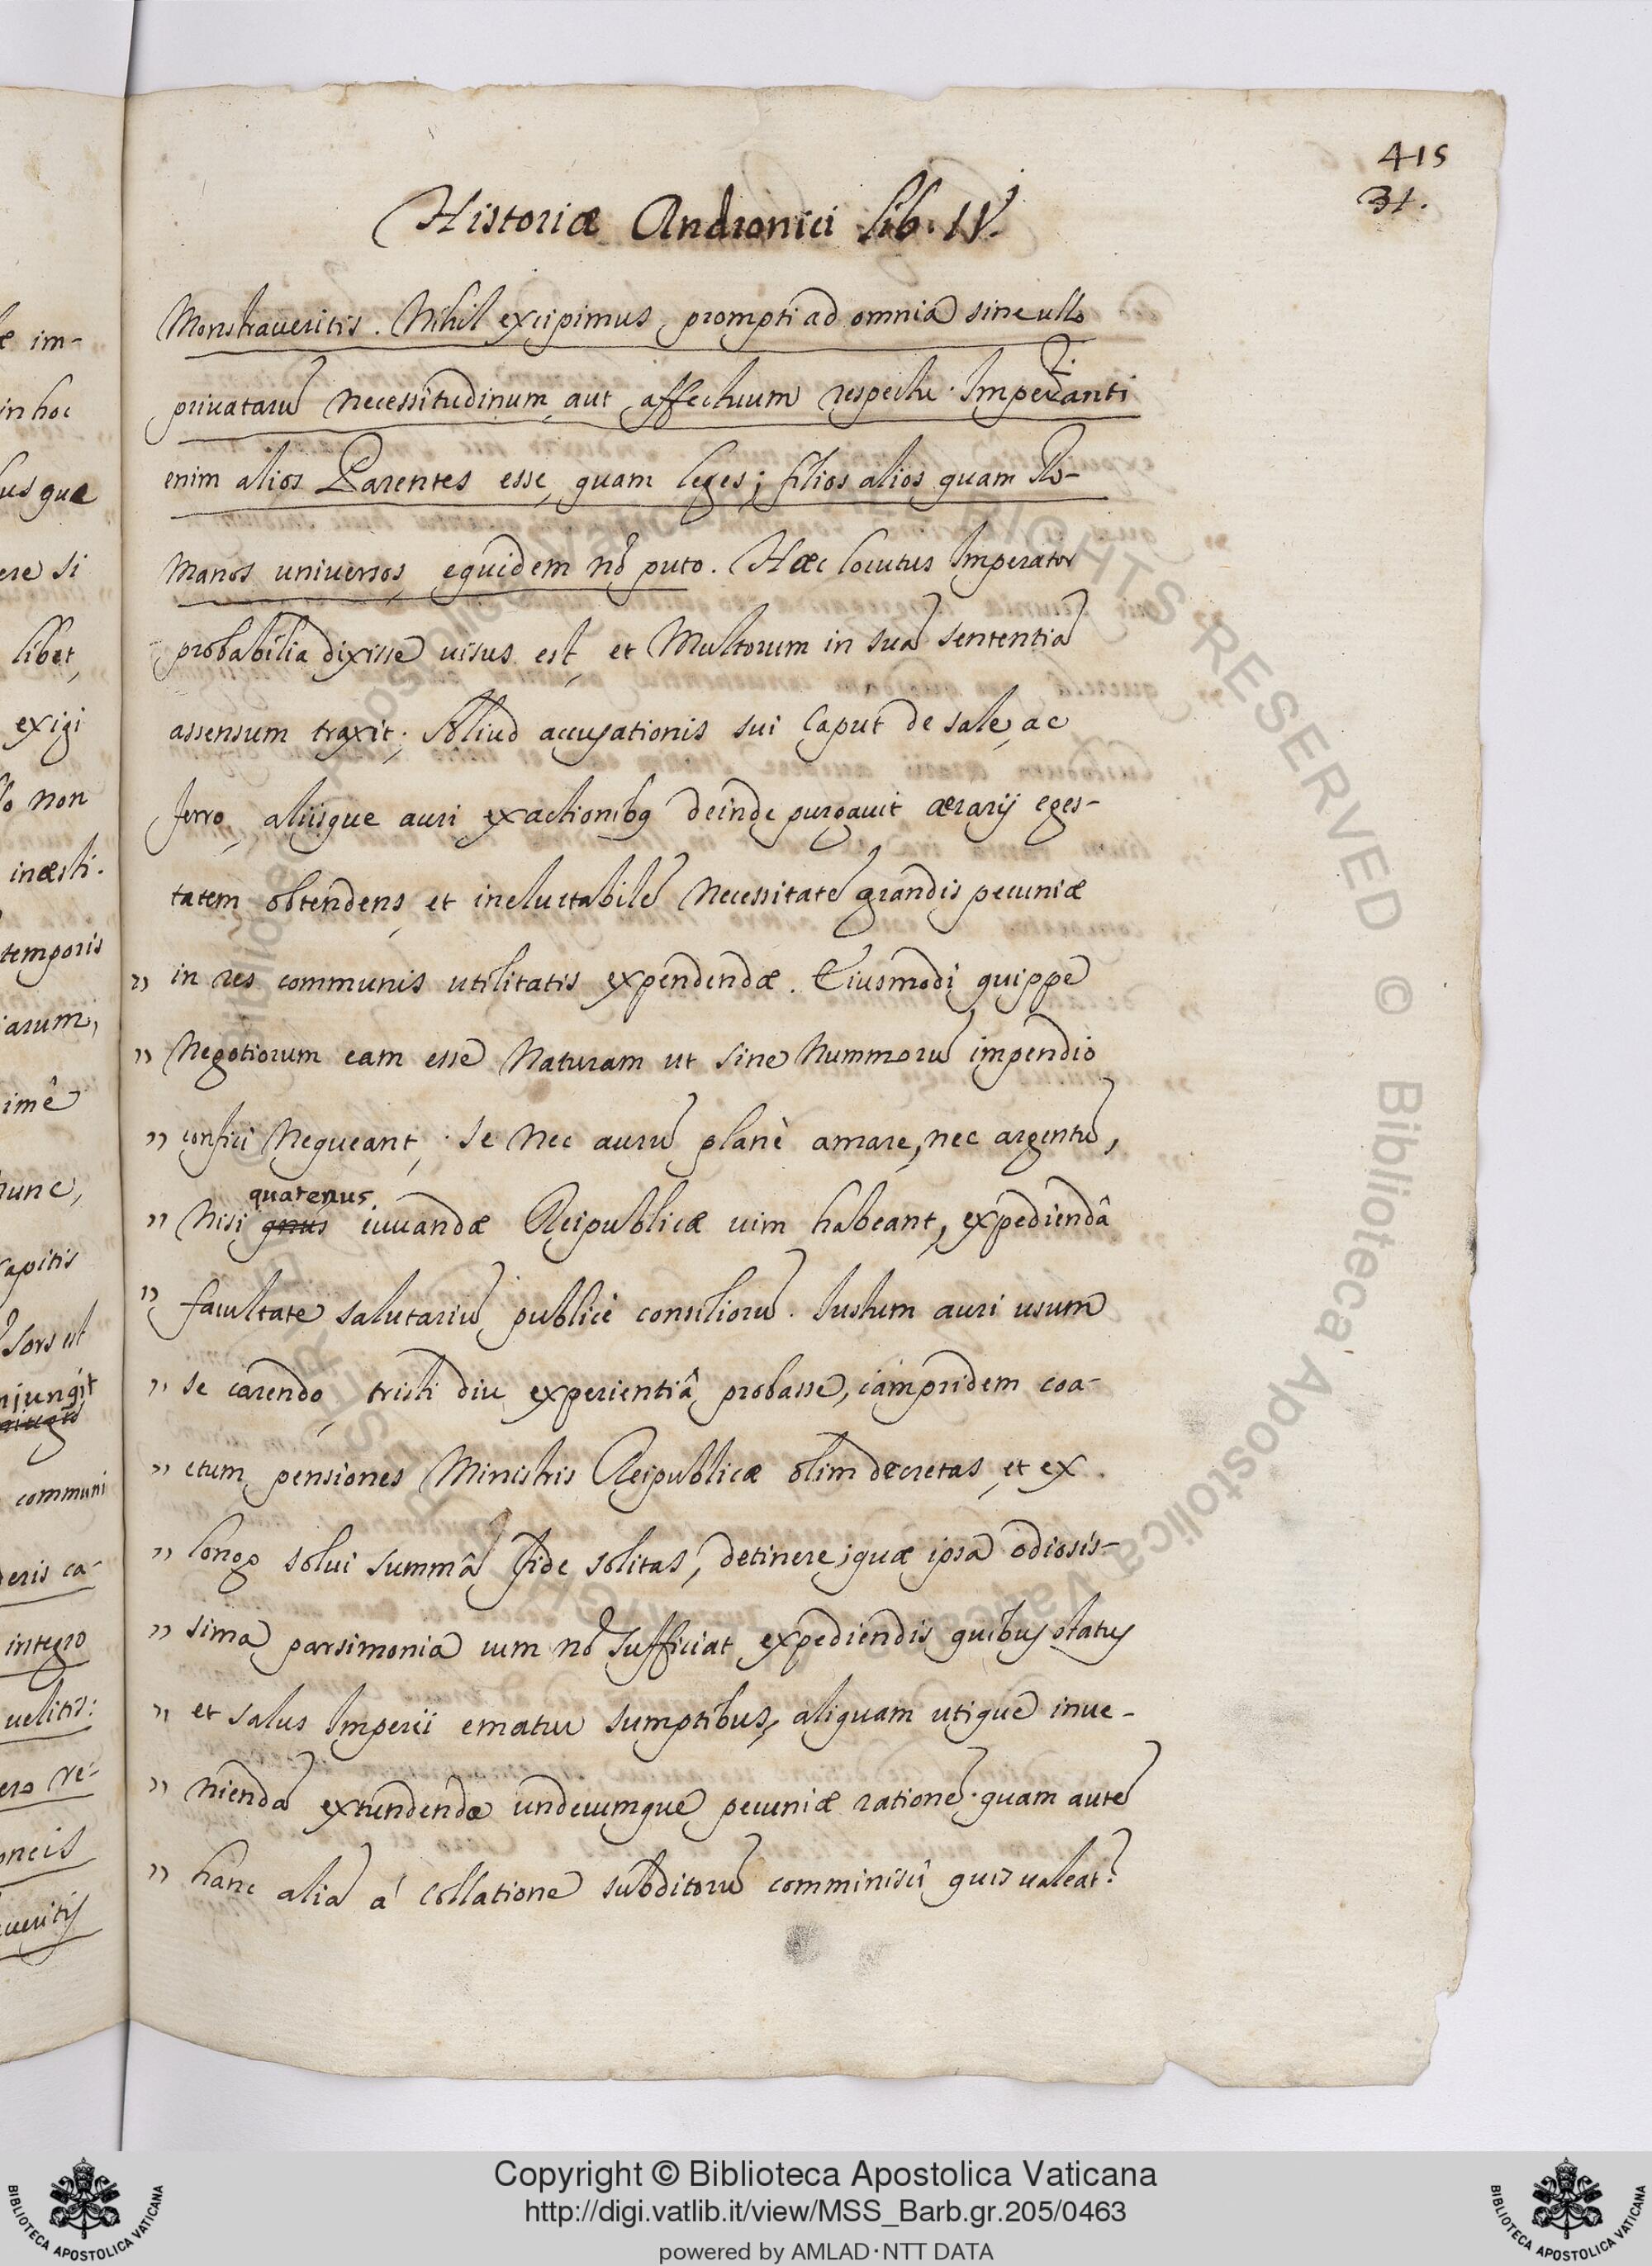 415
31.
Historiæ Andronici Lib. IV.
Monstraueritis. Nihil excipimus, prompti ad omnia sine ullo
priuatarũ necessitudinum, aut affectuum respectu. Imperanti
enim alios Parentes esse, quam leges; filios alios quam Ro-
manos universos, equidem nõ puto. Hæc locutus Imperator
probabilia dixisse uisus est, et Multorum in suã sententiã
assensum traxit. Aliud accusationis sui Caput de sale, ac
ferro, aliisque auri exactionibq deinde purgauit ærarij eges-
tatem obtendens, et ineluctabilẽ Necessitatẽ grandis pecuniæ
„ in res communis utilitatis expendendæ. Eiusmodi quippe
„ Negotiorum eam esse Naturam ut sine Nummorũ impendio
„ confici Nequeant, se Nec aurũ planè amare, nec argentũ,
quatenus
„ Nisi qnus iuuandæ Reipublicæ uim habeant, expediendâ
„ facultate salutariũ publicè consiliorũ. Iustum auri usum
„ se carendo, tristi diu experientiâ probasse, iampridem coa-
„ ctum pensiones Ministris Reipublicæ olim decretas, et ex
„ longo solui summâ fide solitas, detinere; quæ ipsa odiosis-
„ sima parsimonia cum nõ sufficiat expediendis quibus status
„ et salus Imperii ematur sumptibus, aliquam utique inue-
„ niendã extundendæ undecumque pecuniæ rationẽ. quam autẽ
„ hanc aliã à collatione subditorũ comminisci quis ualeat?
æ im-
in hoc
us quæ
ere si
libet,
exigi
lo non
inæsti.
temporis
iarum,
imê
nunc,
capitis
sors est
njungit
communi
deris ca-
integro
uelitis:
ero re-
oneis
ueritis
© Biblioteca Apostolica Vaticana
RIGHTS RESERVED
Copyright © Biblioteca Apostolica Vaticana
http://digi.vatlib.it/view/MSS_Barb.gr.205/0463
powered by AMLAD·NTT DATA
BIBLIOTECA APOSTOLICA VATICANA
BIBLIOTECA APOSTOLICA VATICANA